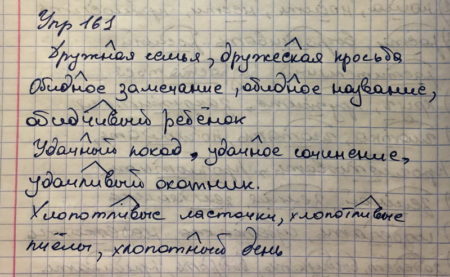 Упр 161
Дружная семья, дружеская просьба
Обидное замечание, обидное название,
обидчивый ребёнок
Удачный поход, удачное сочинение,
удачливый охотник.
Хлопотливые ласточки, хлопотливые
пчёлы, хлопотный день